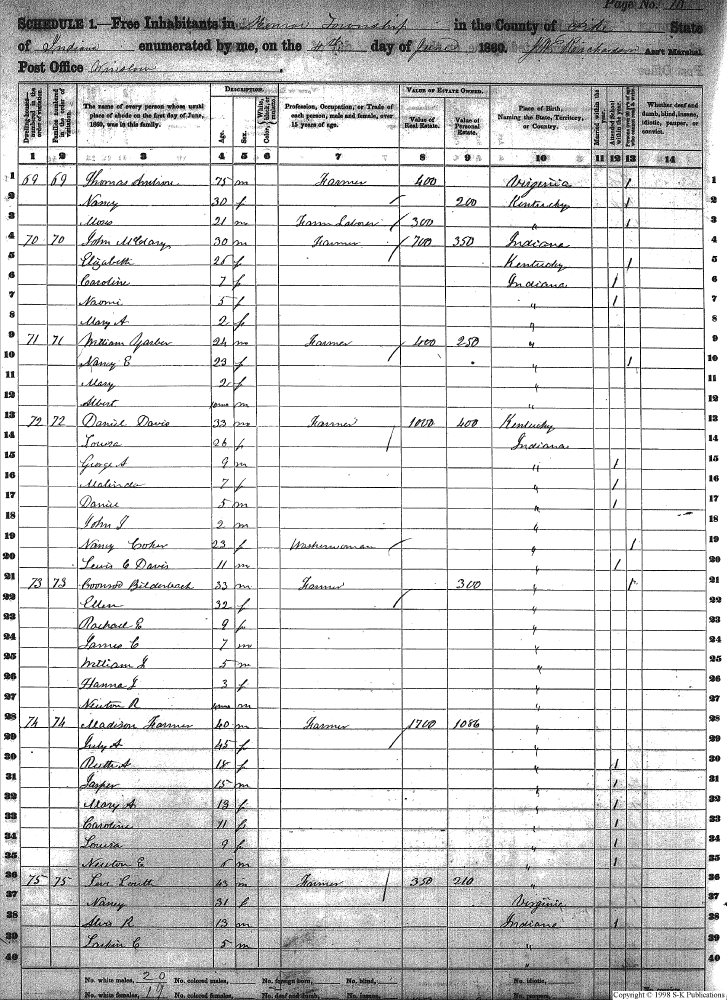 Page No. 10
SCHEDULE 1.—Free Inhabitants in Monroe Township in the County of Pike State
of Indiana enumerated by me, on the 4th day of June 1860. Ass't Marshal.
Post Office Winslow
Dwelling-houses—numbered in the order of visitation.
Families numbered in the order of visitation.
The name of every person whose usual place of abode on the first day of June, 1860, was in this family.
DESCRIPTION.
Age.
Sex.
Color, White, black, or mulatto.
Profession, Occupation, or Trade of each person, male and female, over 15 years of age.
VALUE OF ESTATE OWNED.
Value of Real Estate.
Value of Personal Estate.
Place of Birth, Naming the State, Territory, or Country.
Married within the year.
Attended School within the year.
Whether deaf and dumb, blind, insane, idiotic, pauper, or convict.
1 2 3 4 5 6 7 8 9 10 11 12 13 14
1 69 69 Thomas 75 m Farmer 400 Virginia / 1
2 Nancy 30 f 200 Kentucky / 2
3 Moses 21 m Farm Laborer 300 " / 3
4 70 70 John McClary 30 m Farmer 700 350 Indiana 4
5 Elizabeth 25 f Kentucky / 5
6 Caroline 7 f Indiana / 6
7 Naomi 5 f " / 7
8 Mary A 2 f " 8
9 71 71 William Yarber 24 m Farmer 400 250 " 9
10 Nancy E 23 f " / 10
11 Mary 2 f " 11
12 Albert m " 12
13 72 72 Daniel Davis 33 m Farmer 1000 400 Kentucky 13
14 Louisa 26 f Indiana 14
15 George A 9 m " / 15
16 Malinda 7 f " / 16
17 Daniel 5 m " / 17
18 John J 2 m " 18
19 Nancy Coker 23 f Washerwoman " / 19
20 Lewis C Davis 11 m " / 20
21 73 73 Coonrod Bilderback 33 m Farmer 300 " / 21
22 Ellen 32 f " 22
23 Rachael E 9 f " 23
24 James C 7 m " 24
25 William J 5 m " 25
26 Hanna J 3 f " 26
27 Newton R m " 27
28 74 74 Madison Farmer 40 m Farmer 1700 1086 " 28
29 July A 45 f " 29
30 Ruth A 18 f " / 30
31 Jasper 15 m " / 31
32 Mary A 13 f " / 32
33 Caroline 11 f " / 33
34 Louisa 9 f " / 34
35 Newton E 6 m " / 35
36 75 75 Levi Louth 43 m Farmer 350 210 " 36
37 Nancy 31 f Virginia 37
38 R 13 m Indiana / 38
39 C 5 m " 39
40 " 40
No. white males, 20 No. colored males, No. foreign born, No. blind, No. idiotic,
No. white females, 19 No. colored females, No. deaf and dumb, No. insane,
Copyright © 1998 S-K Publications